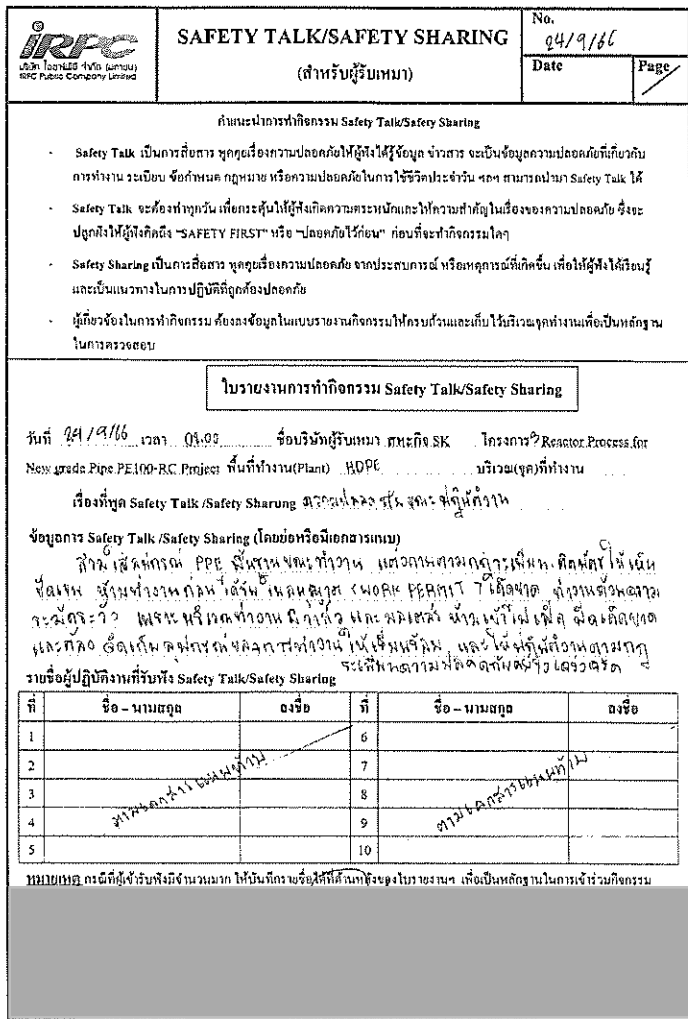 iRPC
บริษัท ไออาร์พีซี จำกัด (มหาชน)
IRPC Public Company Limited
SAFETY TALK/SAFETY SHARING
(สำหรับผู้รับเหมา)
No.
24/9/66
Date
Page
คำแนะนำการทำกิจกรรม Safety Talk/Safety Sharing
- Safety Talk เป็นการสื่อสาร พูดคุยเรื่องความปลอดภัยให้ผู้ฟังได้รู้ข้อมูล ข่าวสาร จะเป็นข้อมูลความปลอดภัยที่เกี่ยวกับ
การทำงาน ระเบียบ ข้อกำหนด กฎหมาย หรือความปลอดภัยในการใช้ชีวิตประจำวัน ฯลฯ สามารถนำมา Safety Talk ได้
- Safety Talk จะต้องทำทุกวัน เพื่อกระตุ้นให้ผู้ฟังเกิดความตระหนักและให้ความสำคัญในเรื่องของความปลอดภัย ซึ่งจะ
ปลูกฝังให้ผู้ฟังคิดถึง "SAFETY FIRST" หรือ "ปลอดภัยไว้ก่อน" ก่อนที่จะทำกิจกรรมใดๆ
- Safety Sharing เป็นการสื่อสาร พูดคุยเรื่องความปลอดภัย จากประสบการณ์ หรือเหตุการณ์ที่เกิดขึ้น เพื่อให้ผู้ฟังได้เรียนรู้
และเป็นแนวทางในการปฏิบัติที่ถูกต้องปลอดภัย
- ผู้เกี่ยวข้องในการทำกิจกรรม ต้องลงข้อมูลในแบบรายงานกิจกรรมให้ครบถ้วนและเก็บไว้บริเวณจุดทำงานเพื่อเป็นหลักฐาน
ในการตรวจสอบ
ใบรายงานการทำกิจกรรม Safety Talk/Safety Sharing
วันที่ 24/9/66 เวลา 08.00 ชื่อบริษัทผู้รับเหมา สหะกิจ SK โครงการ Reactor Process for
New grade Pipe PE100-RC Project พื้นที่ทำงาน(Plant) HDPE บริเวณ(จุด)ที่ทำงาน
เรื่องที่พูด Safety Talk /Safety Sharung ความปลอดภัยขณะปฏิบัติงาน
ข้อมูลการ Safety Talk /Safety Sharing (โดยย่อหรือมีเอกสารแนบ)
สวมใส่อุปกรณ์ PPE พื้นฐานขณะทำงาน แต่งกายตามกฎระเบียบ ติดบัตรให้เห็น
ชัดเจน ห้ามทำงานก่อนได้รับใบอนุญาต <WORK PERMIT> เด็ดขาด ทำงานด้วยความ
ระมัดระวัง เพราะบริเวณทำงาน ห้าม
และต้องจัดเก็บอุปกรณ์ การทำงานให้ และให้ปฏิบัติงานตามกฎ
ระเบียบความปลอดภัยอย่างเคร่งครัด
รายชื่อผู้ปฏิบัติงานที่รับฟัง Safety Talk/Safety Sharing
ที่ ชื่อ – นามสกุล ลงชื่อ ที่ ชื่อ – นามสกุล ลงชื่อ
1 6
2 7
3 ตามเอกสารแนบท้าย 8 ตามเอกสารแนบท้าย
4 9
5 10
หมายเหตุ กรณีที่ผู้เข้ารับฟังมีจำนวนมาก ให้บันทึกรายชื่อไว้ที่ด้านหลังของใบรายงานฯ เพื่อเป็นหลักฐานในการเข้าร่วมกิจกรรม